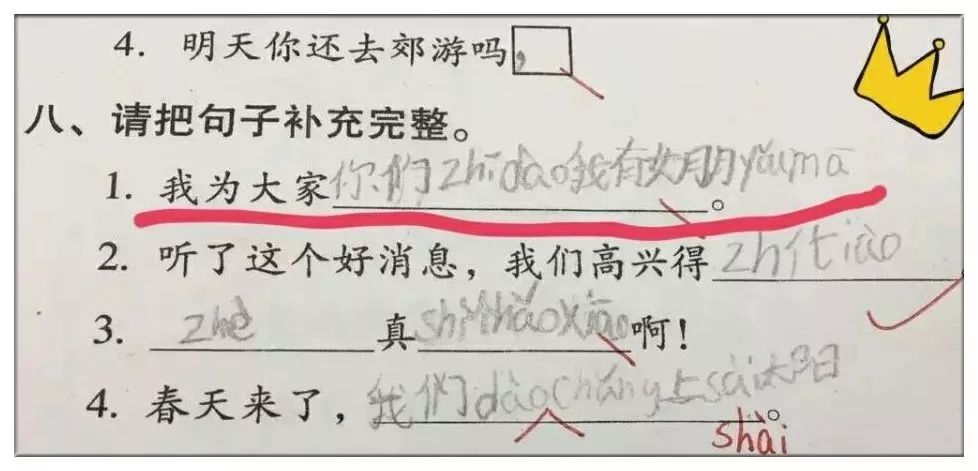 4. 明天你还去郊游吗,
八、请把句子补充完整。
1. 我为大家你们zhīdào我有女月月yǒumā。
2. 听了这个好消息，我们高兴得zhítiào
3. zhè真shìhǎoxiào啊！
4. 春天来了，我们dàochǎng上sài太阳。
shài